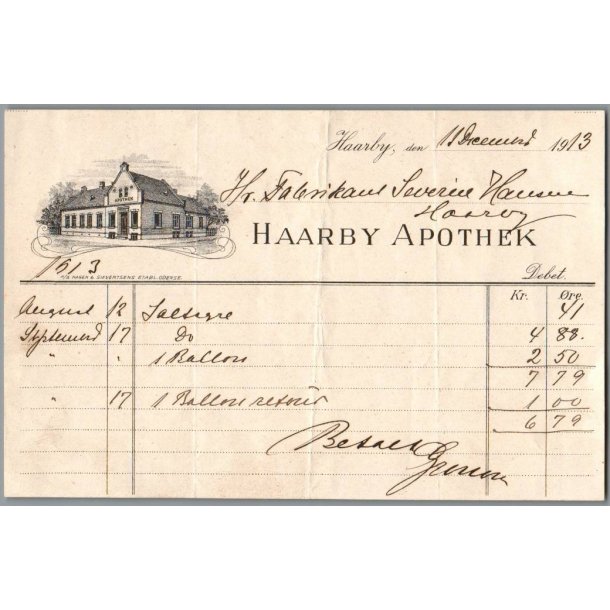 Haarby, den 11 Decembr 1913
Hr. Fabrikant Severin Hansen
Haarby
APOTHEK
HAARBY APOTHEK
1913
A/S HAGEN & SIEVERTSENS ETABL. ODENSE.
Debet.
Kr. Øre
August 12 Saltsyre 41
Septembr 17 Do 4 88.
" " 1 Ballon 2 50
7 79
" 17 1 Ballon retour 1 00
6 79
Betalt